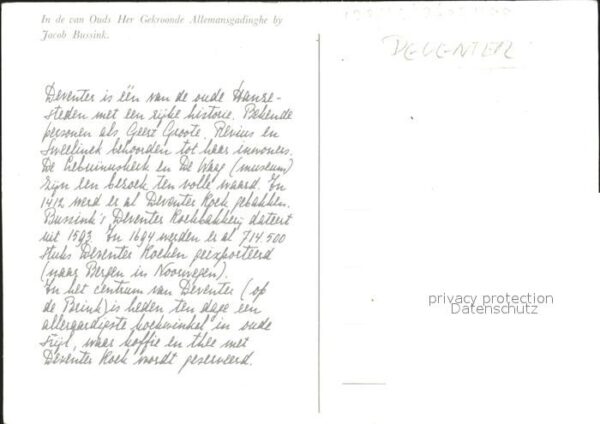 In de van Ouds Her Gekroonde Allemansgadinghe by
Jacob Bussink.
DEVENTER
Deventer is één van de oude Hanze-
steden met een rijke historie. Bekende
personen als Geert Groote, Revius en
Sweelinck behoorden tot haar inwoners.
De Lebuinuskerk en De Waag (museum)
zijn een bezoek ten volle waard. In
1412 werd er al Deventer Koek gebakken.
Bussink's Deventer Koekbakkerij dateert
uit 1593. In 1694 werden er al 714.500
stuks Deventer Koeken geëxporteerd
(naar Bergen in Noorwegen).
In het centrum van Deventer (op
de Brink) is heden ten dage een
allergardigste koekwinkel in oude
stijl, waar koffie en thee met
Deventer Koek wordt geserveerd.
privacy protection
Datenschutz